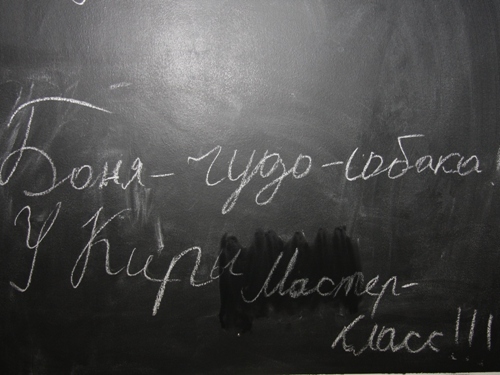 Боня - чудо - собака!
У Кири Мастер-
класс!!!